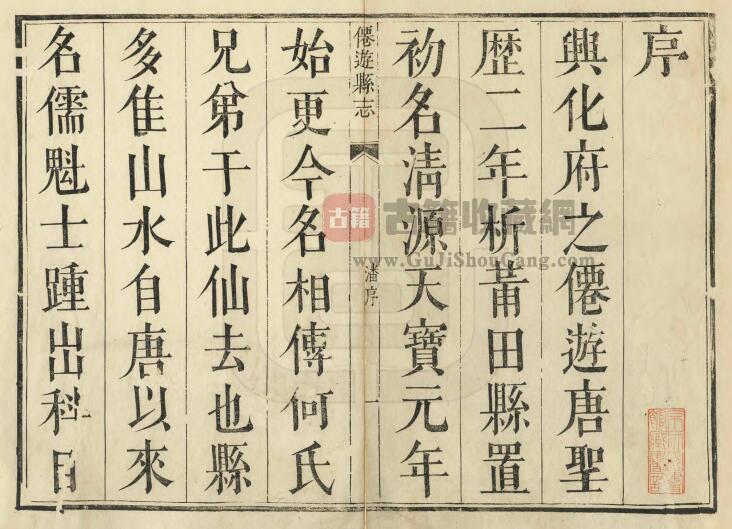 序
興化府之僊遊唐聖
歴二年析莆田縣置
初名清源天寶元年
僊遊縣志
潘序
一
始更今名相傳何氏
兄弟于此仙去也縣
多佳山水自唐以來
名儒魁士踵出科目
古籍
古籍收藏網
www.GuJiShouCang.com